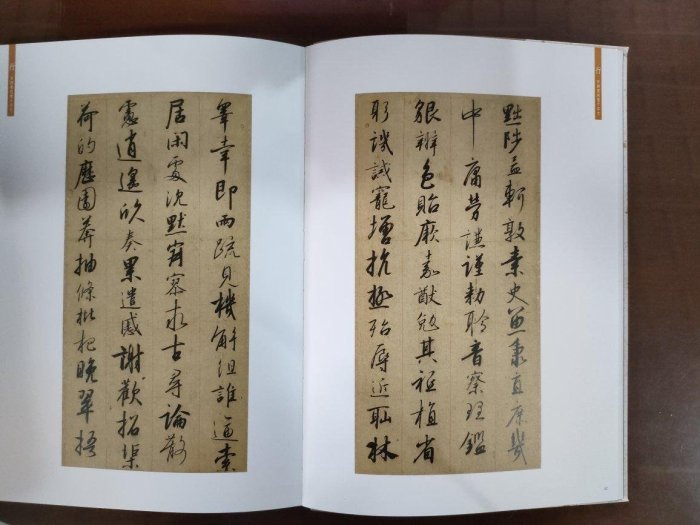 行
黜陟孟軻敦素史魚秉直庶幾
中庸勞謙謹勅聆音察理鑑
貌辨色貽厥嘉猷勉其祗植省
躬譏誡寵增抗極殆辱近恥林
皋幸即兩疏見機解組誰逼索
居閑處沉默寂寥求古尋論散
慮逍遙欣奏累遣慼謝歡招渠
荷的歷園莽抽條枇杷晚翠梧